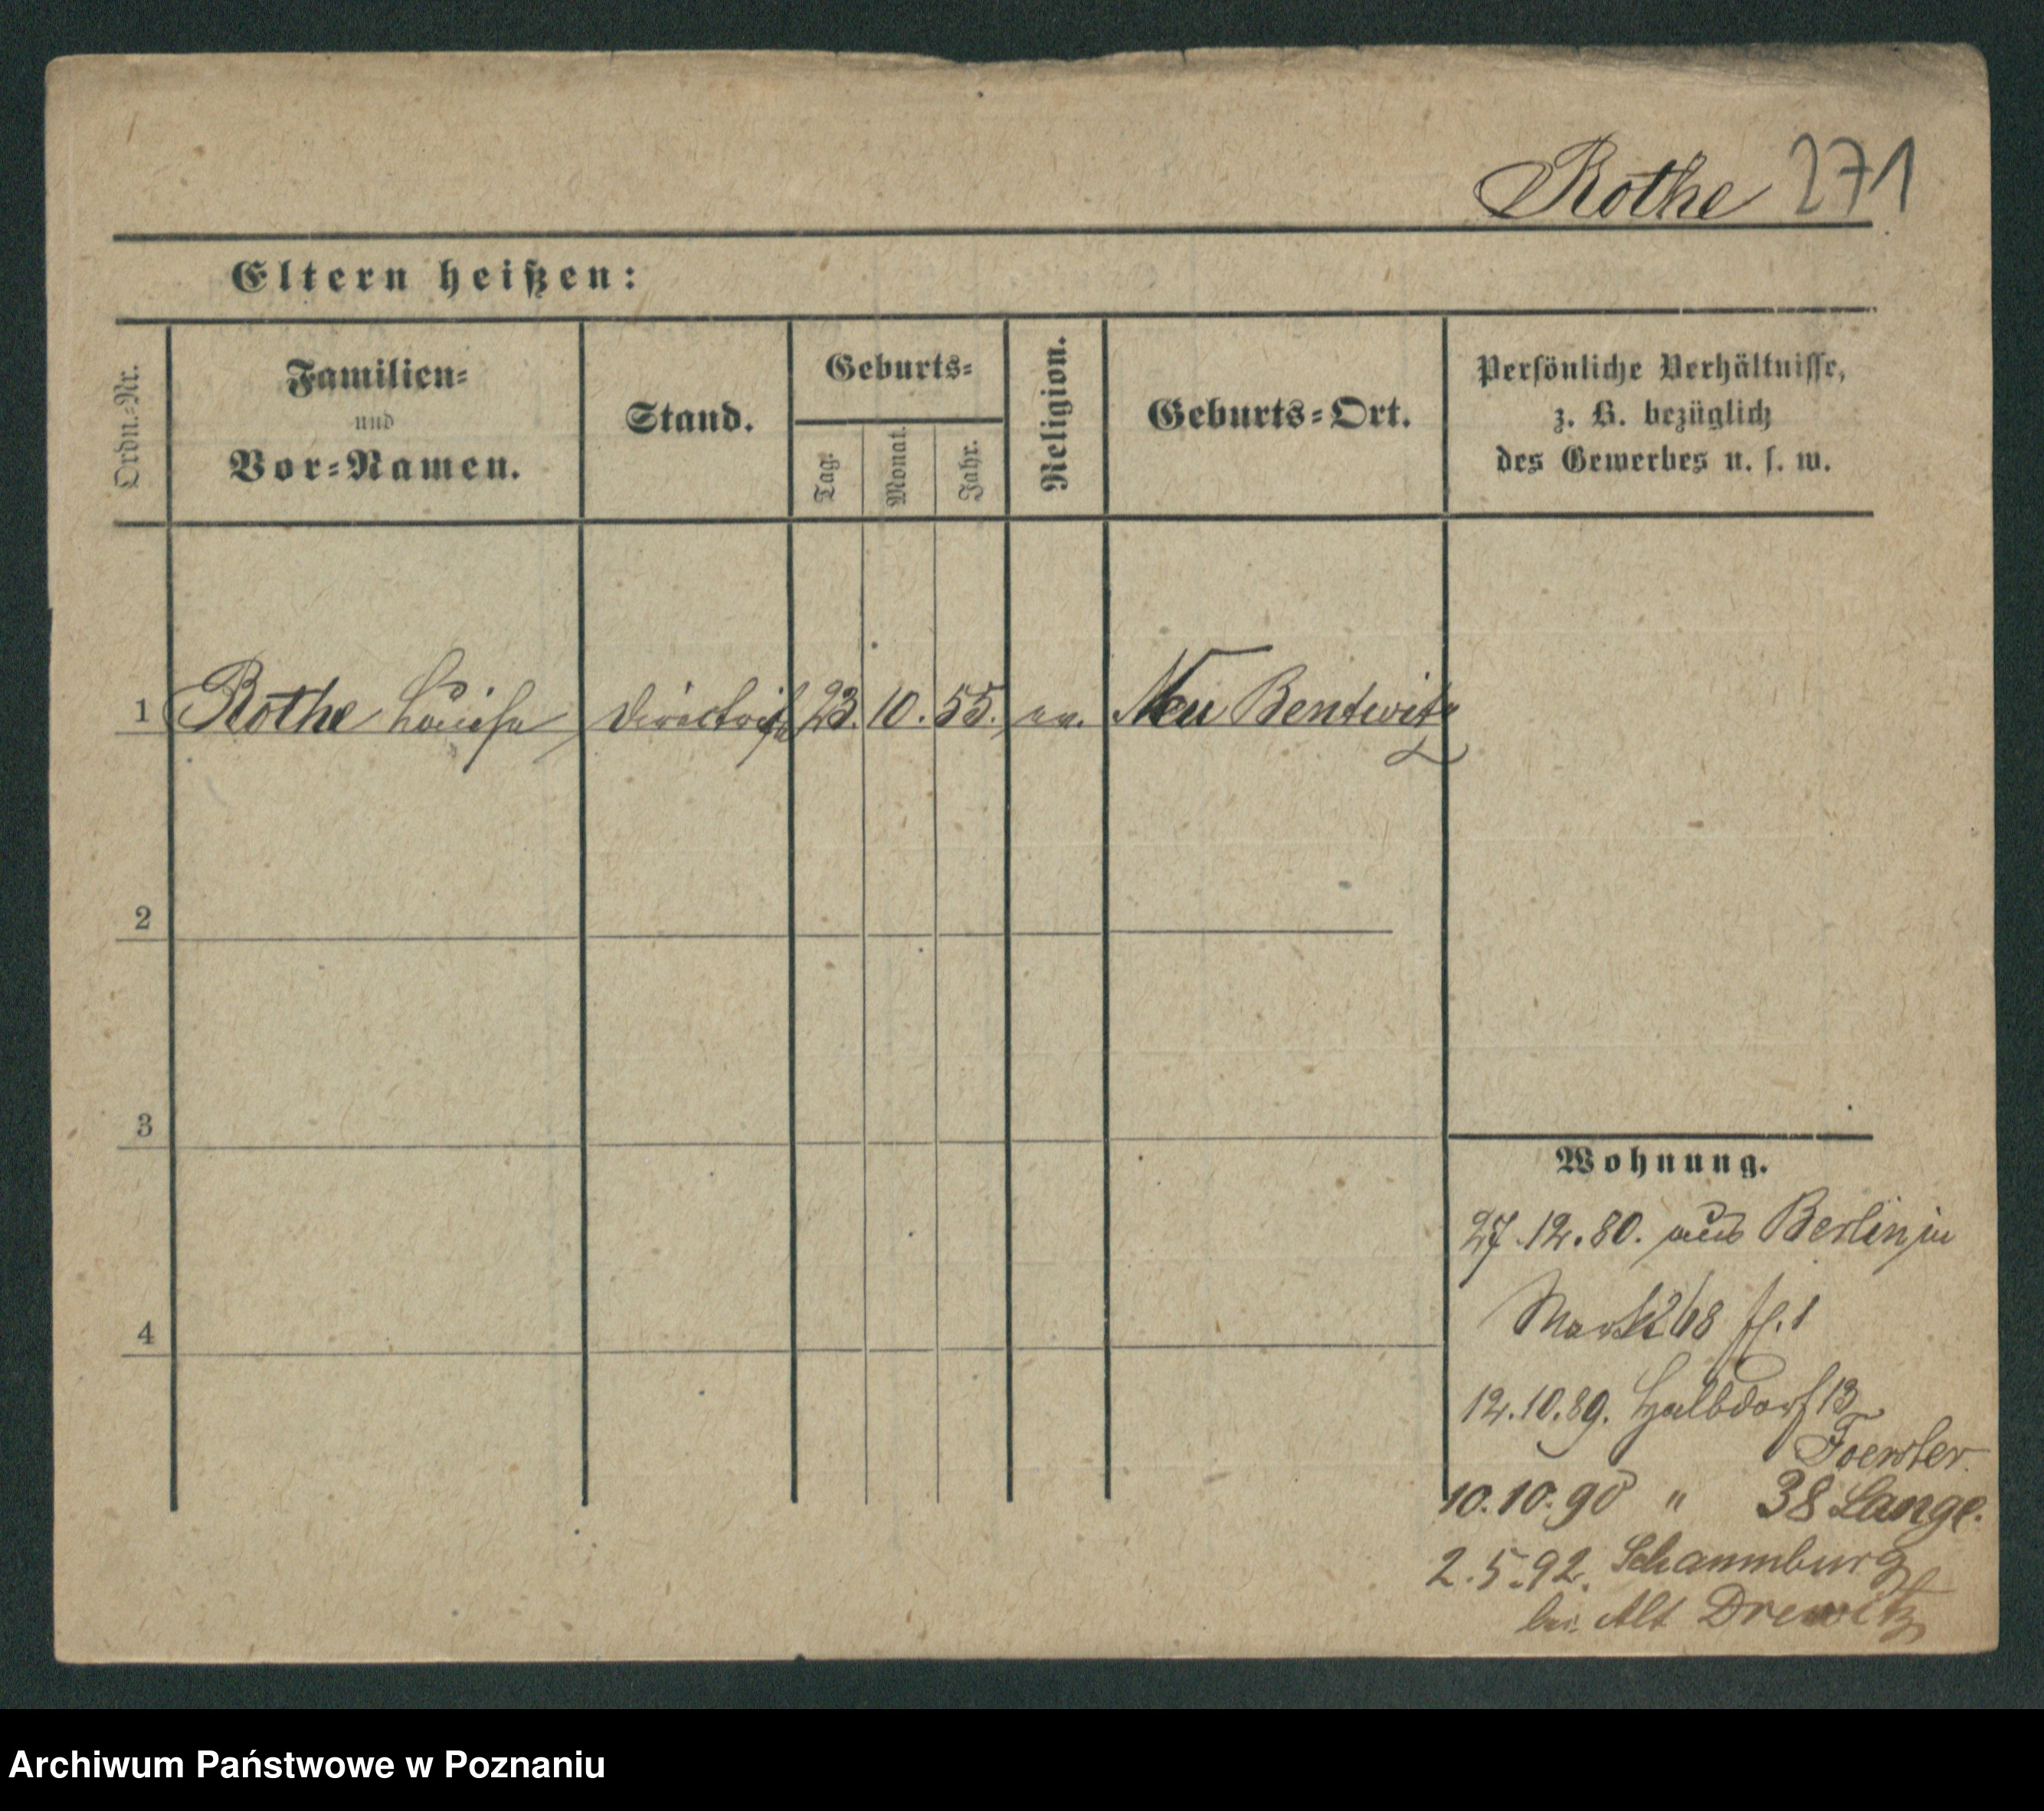 Rothe 271
Eltern heißen:
Ordn.-Nr.
Familien-
und
Vor-Namen.
Stand.
Geburts-
Tag.
Monat.
Jahr.
Religion.
Geburts-Ort.
Persönliche Verhältnisse,
z. B. bezüglich
des Gewerbes u. s. w.
1 Rothe Louise Directrise 23. 10. 55. ev. Neu Bentwitz
2
3
4
Wohnung.
27.12.80. aus Berlin in
Markt 68
12.10.89. Halbdorf 13
Foerster.
10.10.90 " 38 Lange.
2.5.92. Schaumburg
bei Alt Drewitz
Archiwum Państwowe w Poznaniu